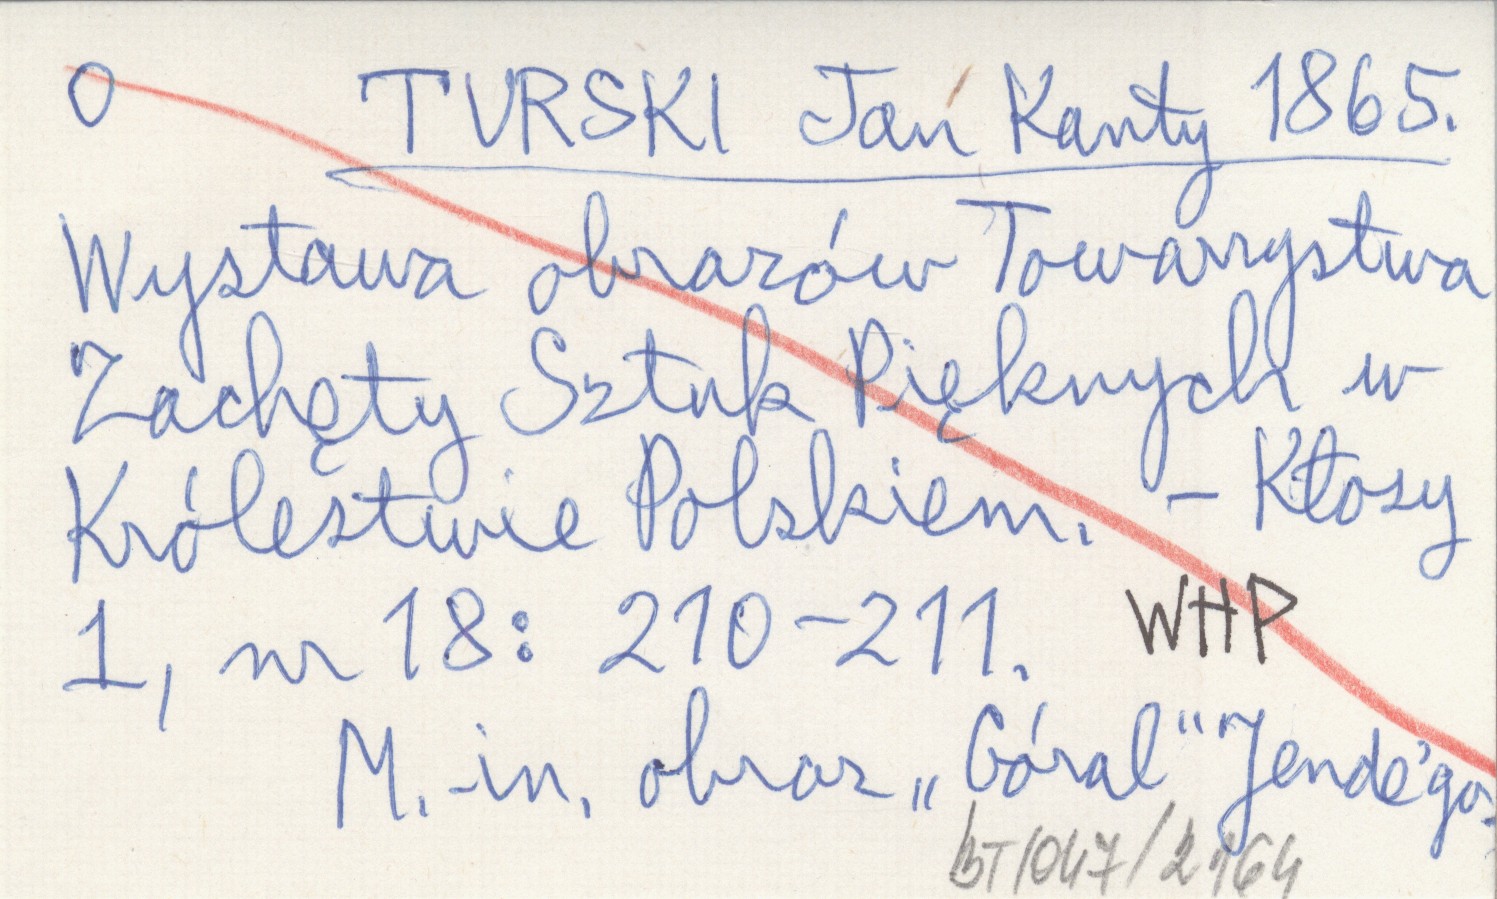 O TURSKI Jan Kanty 1865.
Wystawa obrazów Towarzystwa
Zachęty Sztuk Pięknych w
Królestwie Polskiem. - Kłosy
1, nr 18: 210-211. WHP
M. in. obraz „Góral" Jende'go.
BT/047/2164